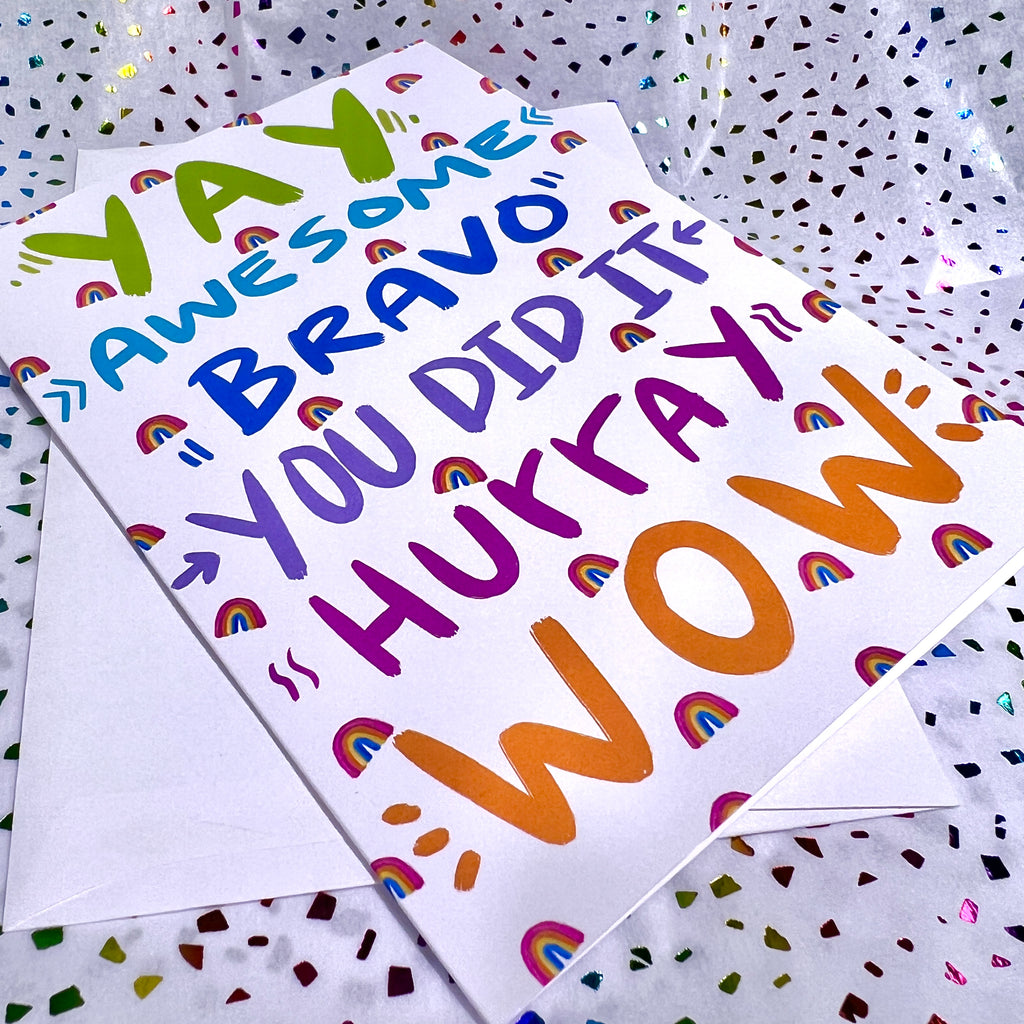 YAY
AWESOME
BRAVO
YOU DID IT
HURRAY
WOW